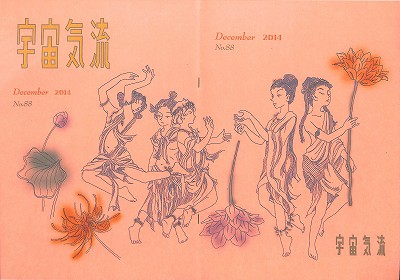 宇宙気流
December 2014
No.88
December 2014
No.88
宇宙気流